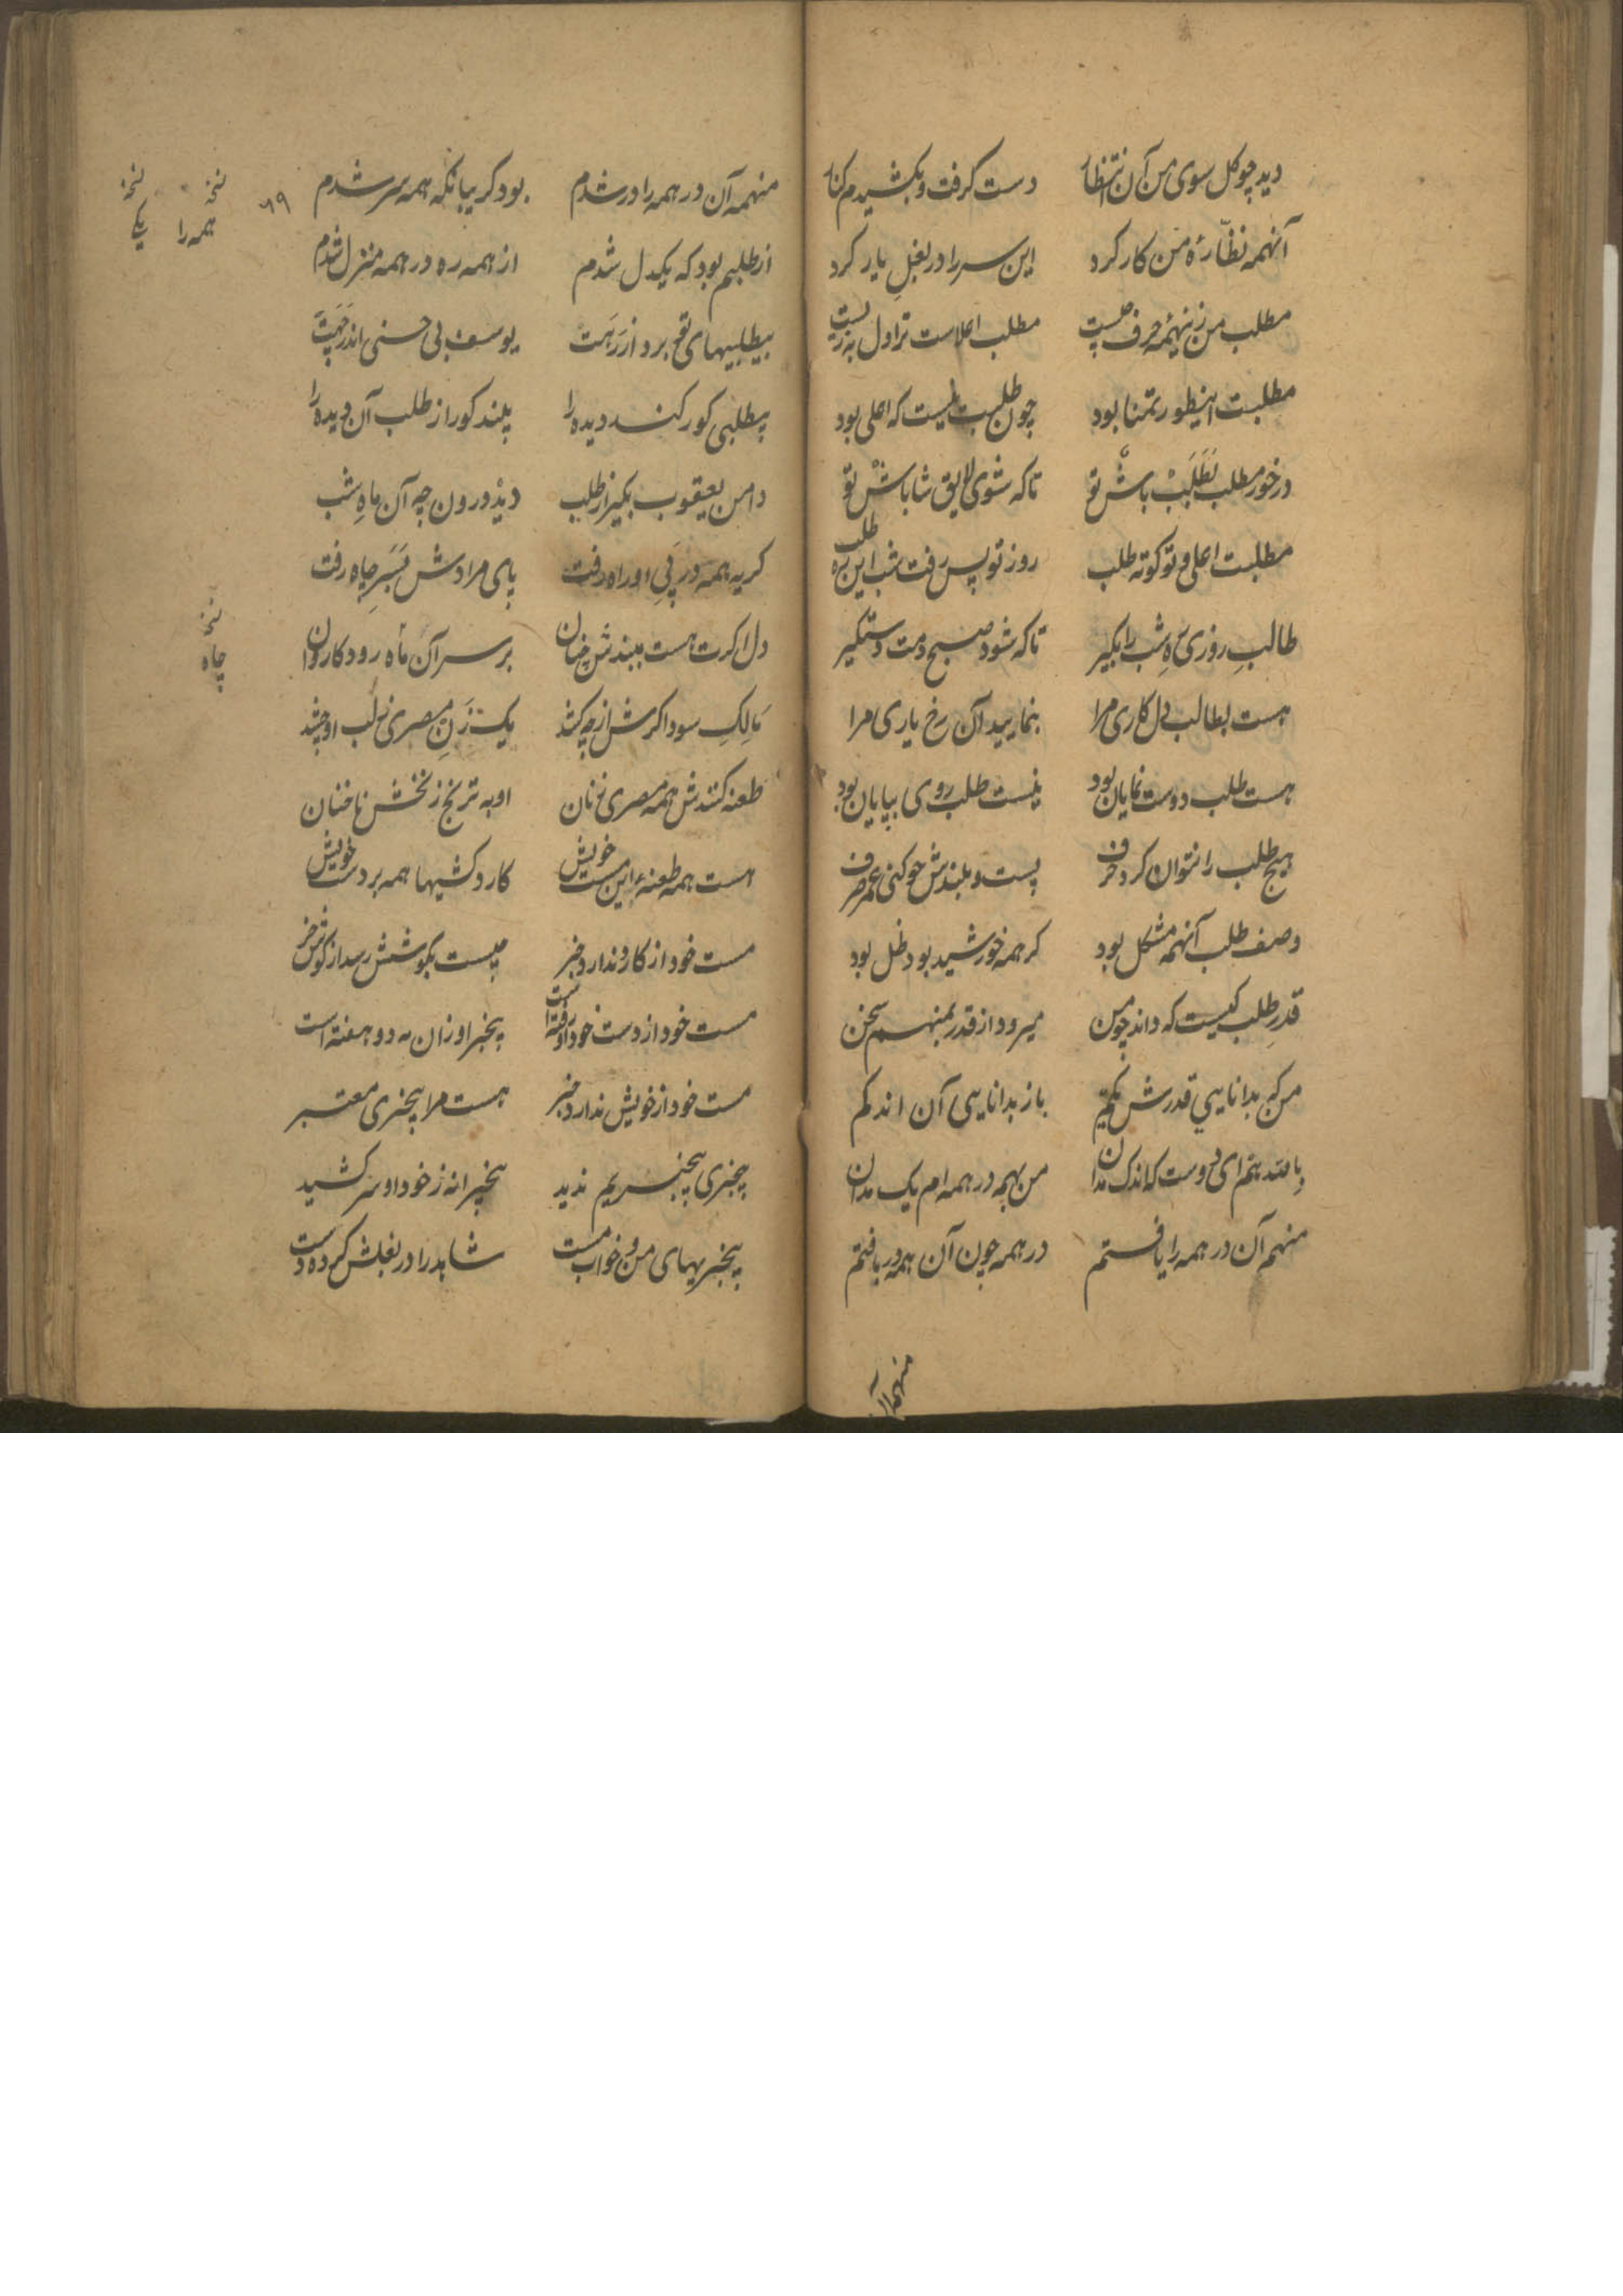 دید چو گل سوی من آن انتظار دست گرفت و بکشیدم کنار
آنهمه نظّارهٔ من کار کرد این سر را در بغلِ یار کرد
مطلب من زینهمه حرف چیست مطلب اعلاست ترا دل به
مطلبت اینطور تمنا بود چون طلبت نیست که اعلی بود
درخور مطلب بَطَلَبْ باش تو تا که شوی لایق شاباشْ تو
مطلبت اعلی و تو کوته طلب روز تو پس رفت شب این ره طلب
طالبِ روزی رهِ شب را بگیر تا که شود صبح دمت دستگیر
هست بطالب دل کاری مرا بنمایید آن رخ یاری مرا
هست طلب دوست نمایان بود نیست طلب روی بپایان بود
هیچ طلب را نتوان کرد حرف پست و بلندش چو کنی عمر صرف
وصف طلب آنهمه مشکل بود گر همه خورشید بود ظل بود
قدرِ طلب کیست که داند چو من میرود از قدر بمنهم سخن
من که بدانایی قدرش گمم باز بدانایی آن اندکم
باهمه‌ام ای دوست که اندک مدان من بهمه در همه‌ام یک مدان
منهم آن در همه را یافتم در همه چون آن همه دریافتم
منهمه آن
٦٩
منهمه آن در همه را در شدم بود گریبانکه همه سر شدم
نسخه همه را
نسخه یکی
از طلبم بود که یکدل شدم از همه ره در همه منزل شدم
بیطلبیهای تو برد از رَهت یوسف بی حسنی اندر چَهت
بیطلبی کور کند دیده را بیند کور از طلب آن دیده را
دامن یعقوب بگیر از طلب دید درون چه آن ماهِ شب
گریه همه در پیِ او راه رفت پای مرادش بسَرِ چاه رفت
دل اگرت هست ببندش چنان بر سر آن ماه رود کاروان
نسخه چاه
مَالِکِ سوداگرش از چه کشد یک زنِ مصری ز لب او چشد
طعنه کنندش همه مصری زنان او به ترنج زنخش ناخنان
هست همه طعنهٔ این مست خویش کارد کشیها همه بر دست خویش
مست خود از کار و ندارد خبر نیست بگوشش رسد از گوش خر
مست خود از دست خود او رفته است بیخبر او زان مه دو هفته است
مست خود از خویش ندارد خبر هست مرا بیخبری معتبر
بیخبری بیخبریم ندید بیخبرانه ز خود او سر کشید
بیخبریهای من و خواب مست شاهد را در بغلش کرده دست